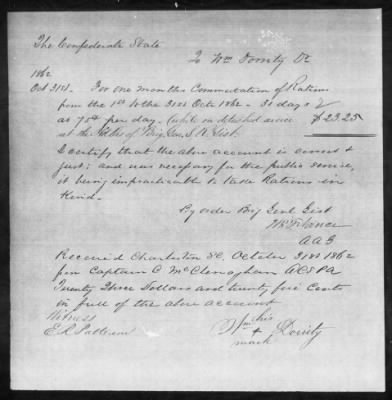 The Confederate State
To Wm Dority Dr
1862
Oct 31st. For one months Commutation of Rations
from the 1st to the 31st Octr 1862 - 31 days
at 75¢ per day. (while on detached service $23.25
at the Hdqrs of Brig Gen. S. R. Gist.
I certify that the above account is correct &
just; and was necessary for the public service,
it being impracticable to issue Rations in
Kind.
By order Brig Genl Gist
AAG
Received Charleston SC, October 31st 1862
from Captain C McClenaghan ACS PA
Twenty Three Dollars and twenty five Cents
in full of the above account
Witness
E R Patterson
Wm his + mark Dority